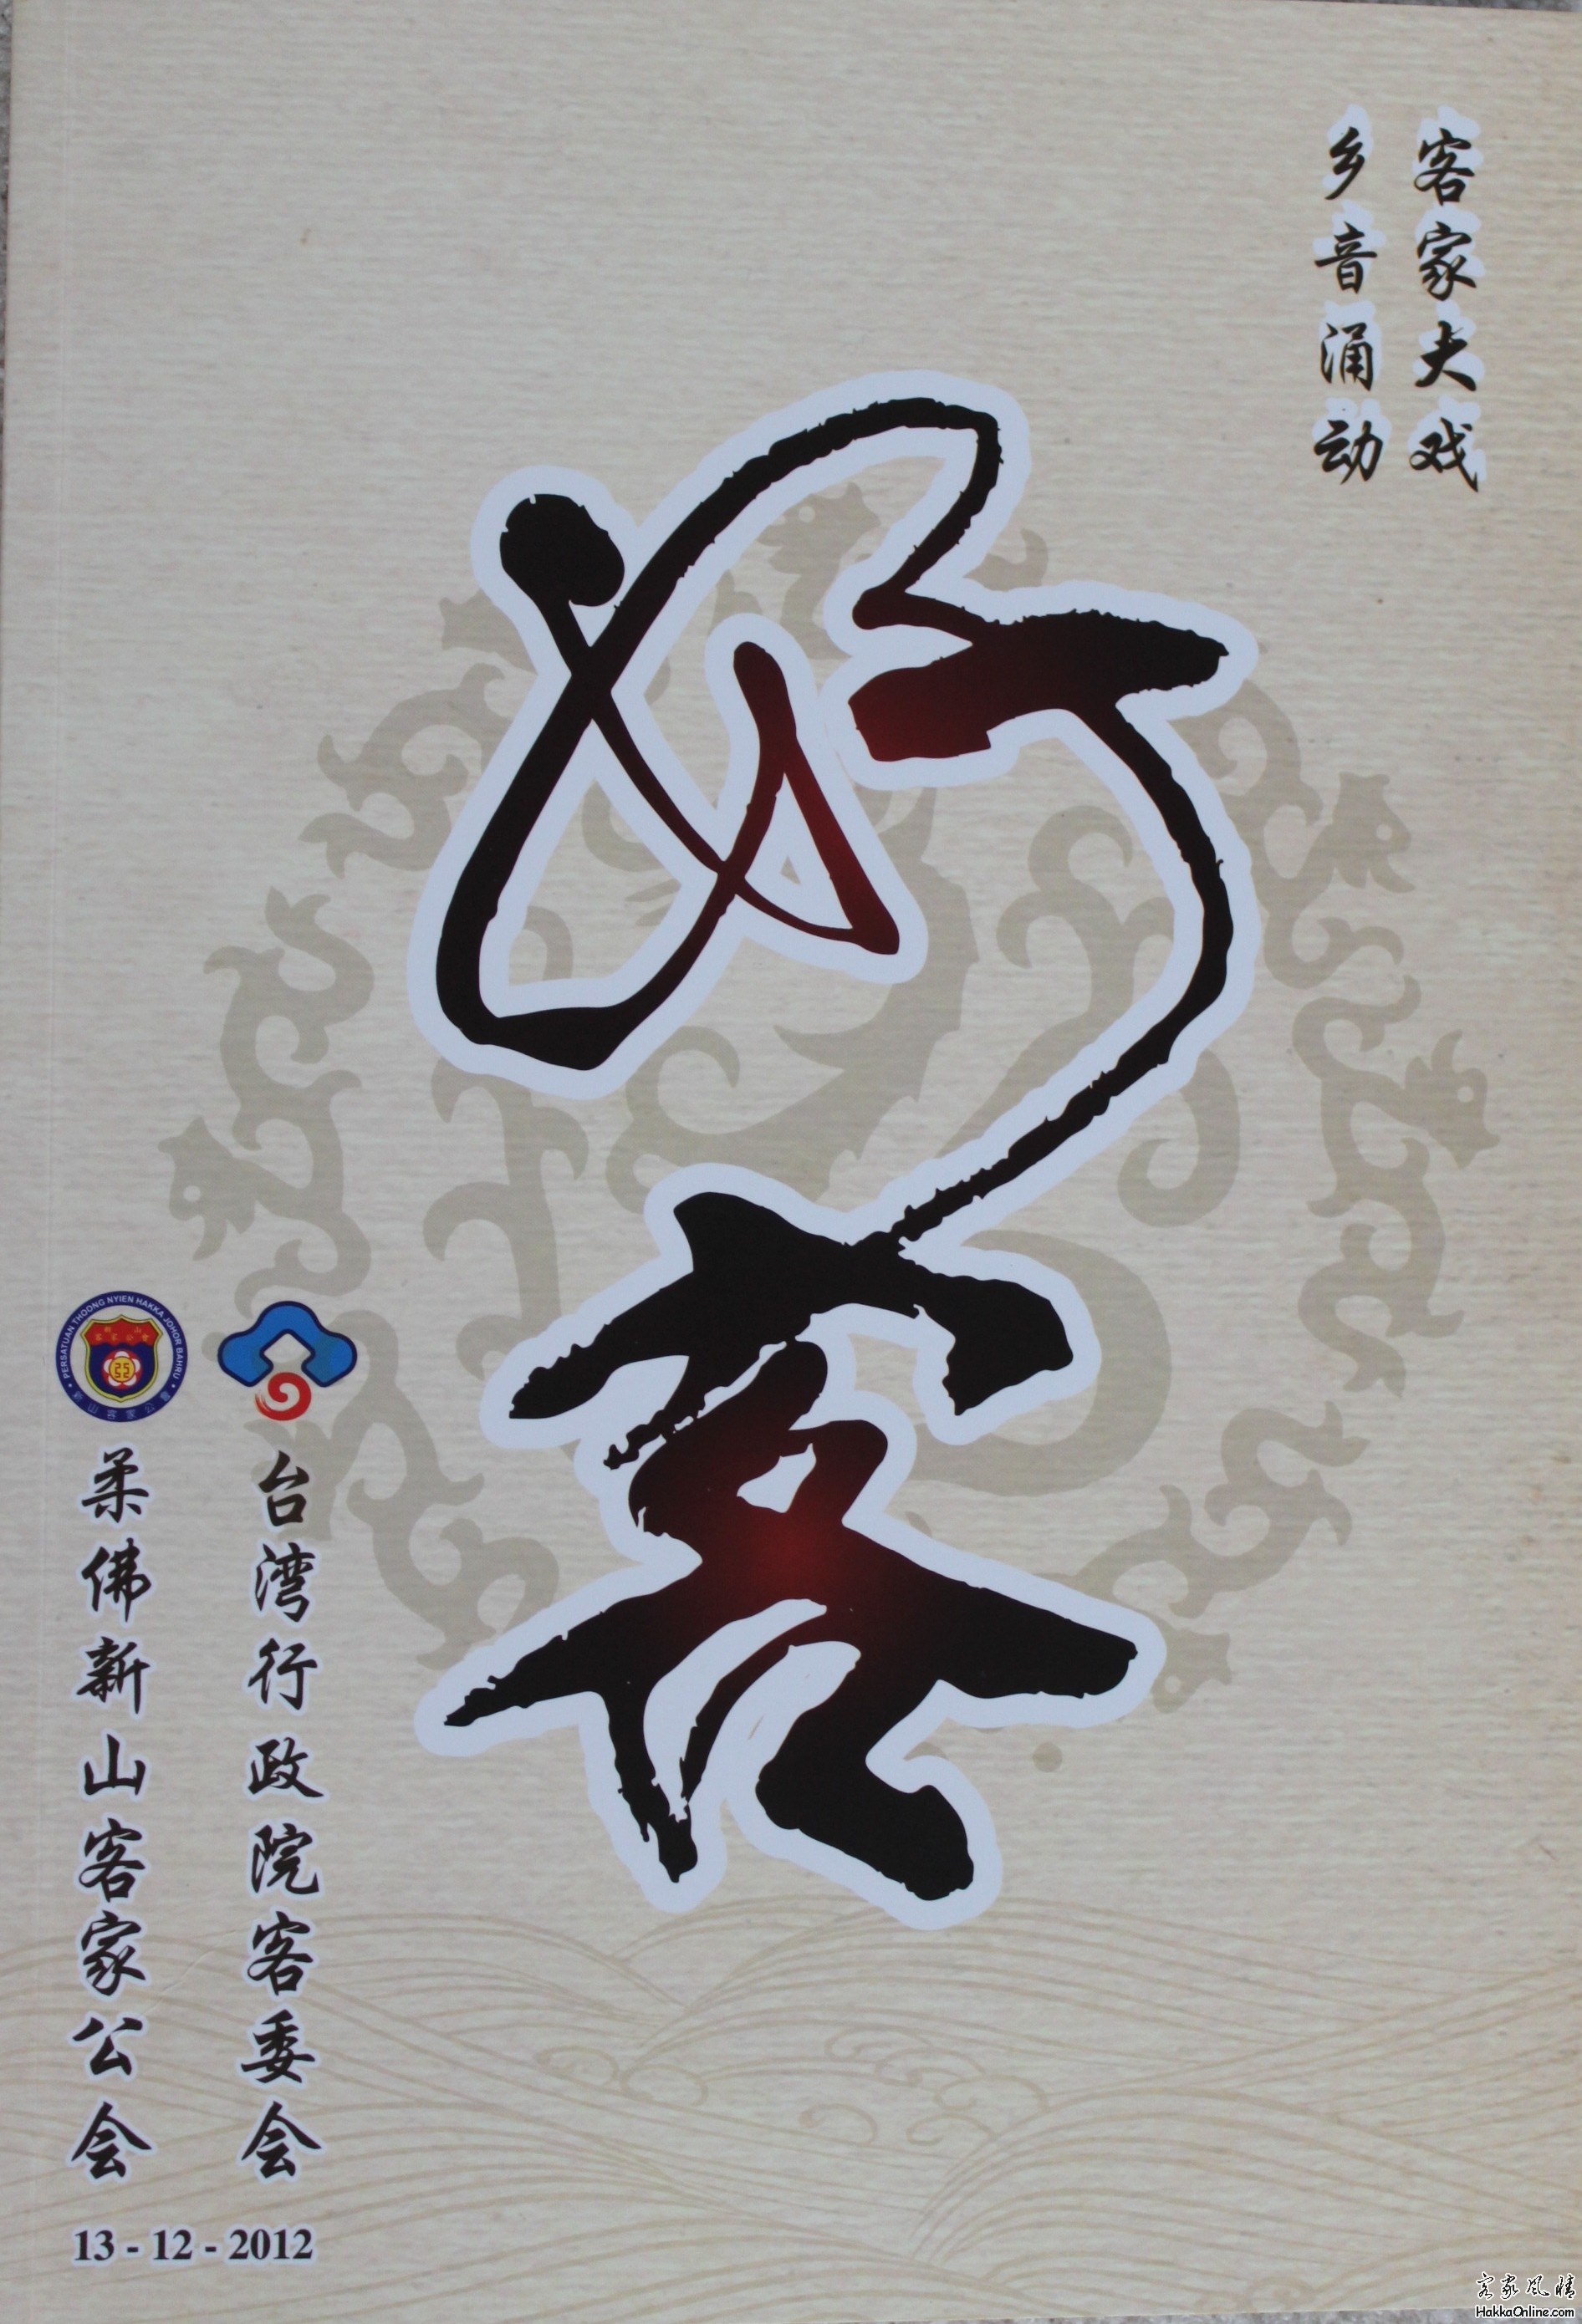 客家大戏
乡音涌动
好客
PERSATUAN THOONG NYIEN HAKKA JOHOR BAHRU
新山客家公會
台湾行政院客委会
柔佛新山客家公会
13 - 12 - 2012
客家风情
HakkaOnline.com